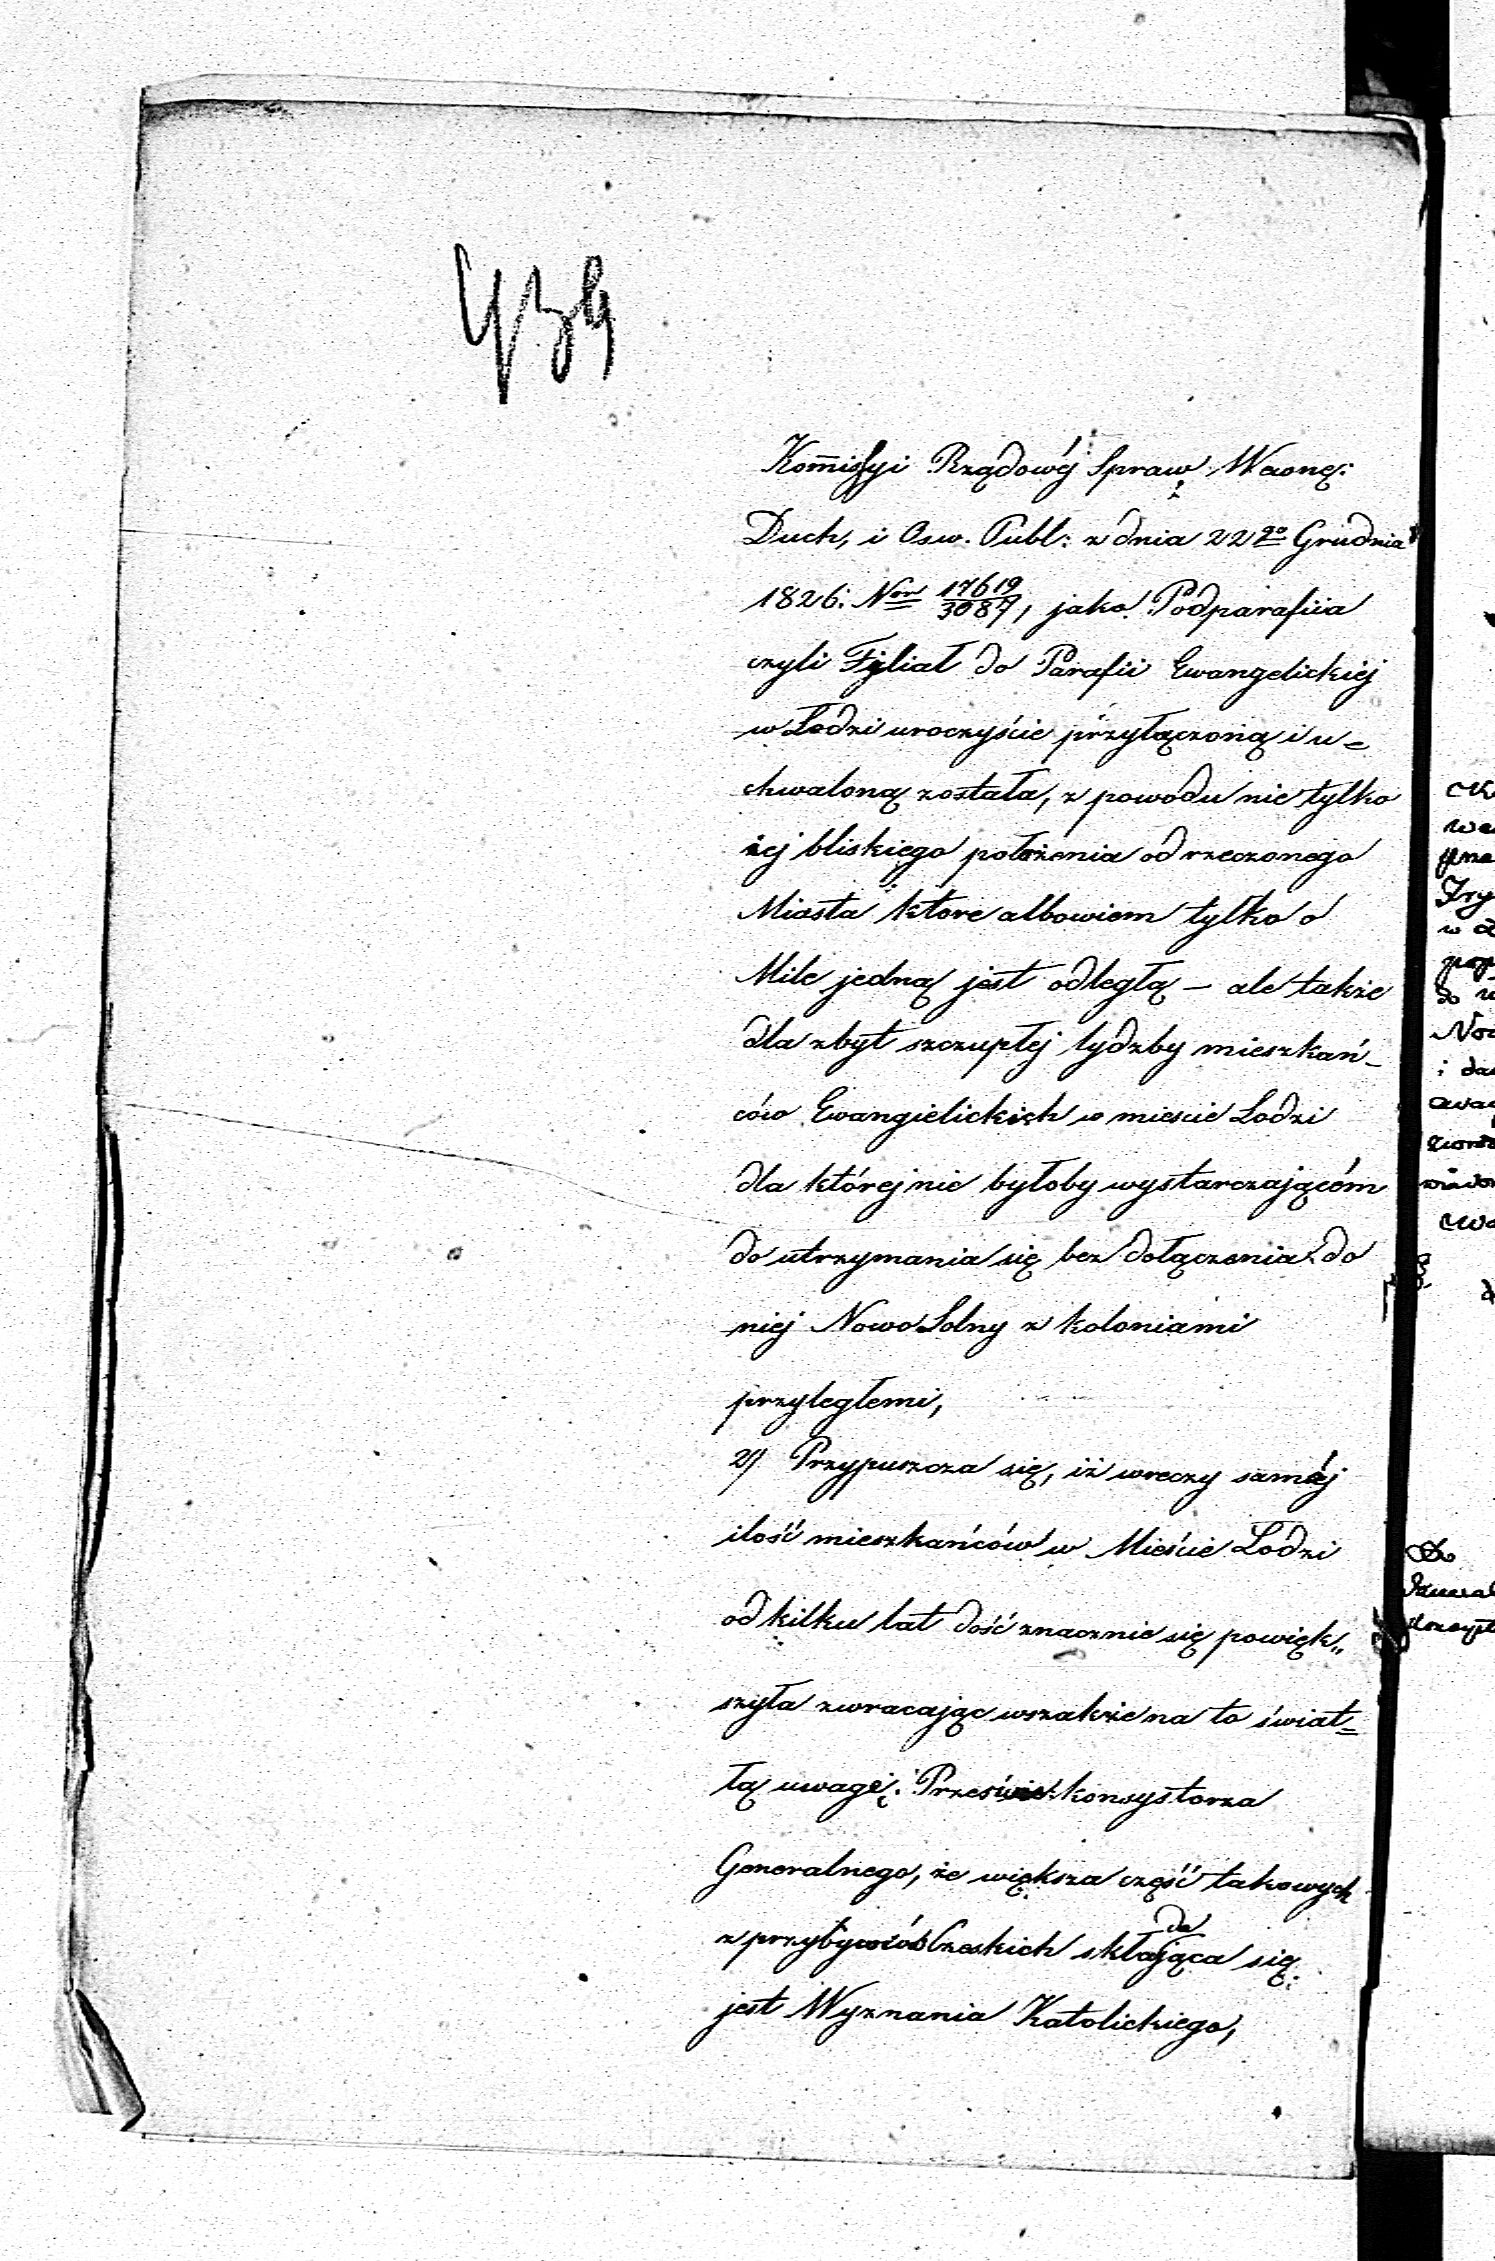 439
Komissyi Rządowéy Spraw Wewnę:
Duch, i Osw. Publ: z dnia 22go Grudnia
1826. Nor 17619/3087, jako Podparafiia
czyli Fyliał do Parafii Ewangelickiéj
w Łodzi uroczyście przyłączoną i u=
chwaloną została, z powodu nie tylko
jej bliskiego położenia od rzeczonego
Miasta które albowiem tylko o
Mile jedną jest odległą – ale także
dla zbyt szczupłej lydzby mieszkań-
ców Ewangielickich w mieście Łodzi
dla której nie byłoby wystarczającém
do utrzymania się bez dołączenia do
niej Nowo Solny z koloniami
przyległemi,
2) Przypuszcza się, iż wreczy saméj
ilość mieszkańców w Mieście Łodzi
od kilku lat dość znacznie się powięk„
szyła zwracając wszakże na to świat=
łą uwagę Prześwie: konsystorza
Generalnego, że większa część takowych
z przybyszów Czeskich składająca się
jest Wyznania Katolickiego,